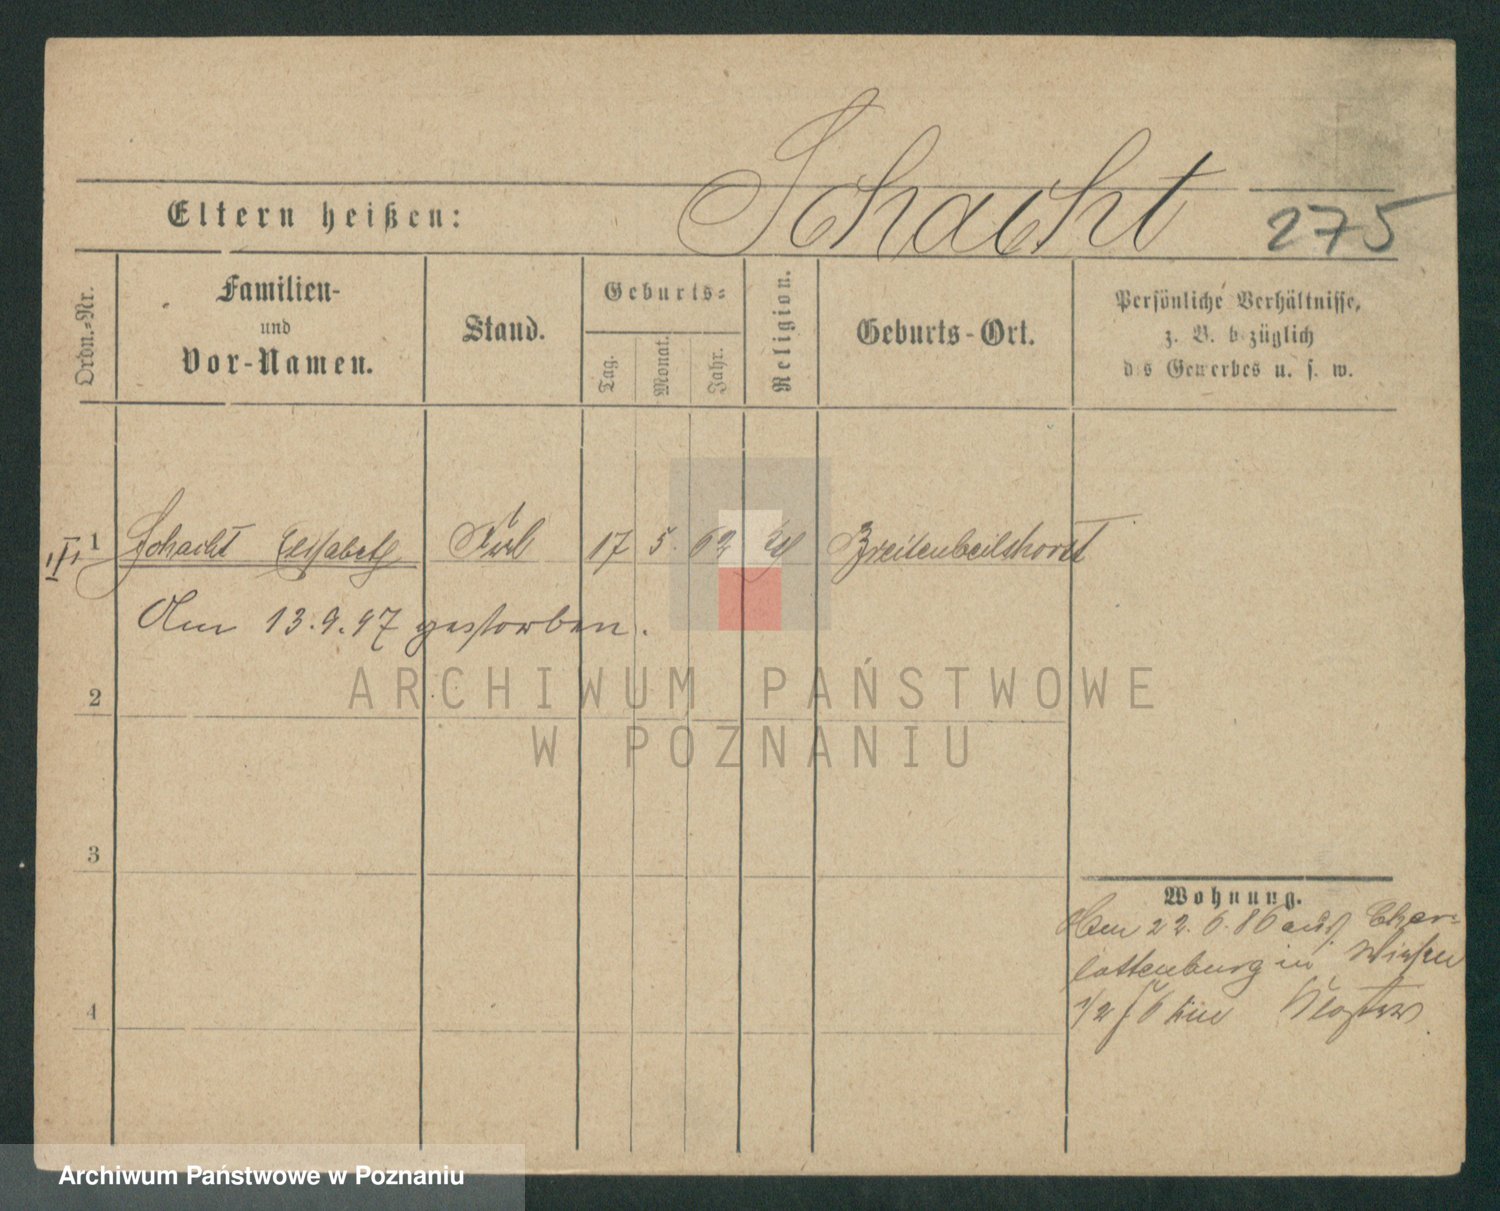 Schacht
Eltern heißen:
275
Ordn.-Nr.
Familien-
und
Vor-Namen.
Stand.
Geburts-
Tag.
Monat.
Jahr.
Religion.
Geburts-Ort.
Persönliche Verhältnisse,
z. B. bezüglich
des Gewerbes u. s. w.
1 Schacht Elisabeth 17 5. 62
Am 13.9.97 gestorben.
ARCHIWUM PAŃSTWOWE
W POZNANIU
2
3
4
Wohnung.
Am 22.6.86 aus Char-
lottenburg in
Archiwum Państwowe w Poznaniu